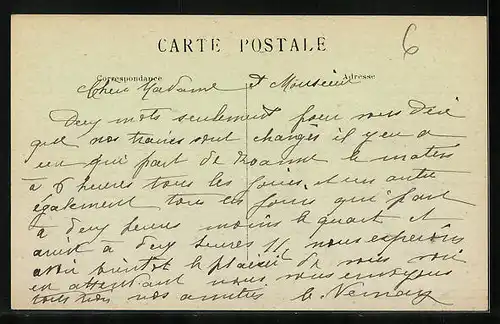 CARTE POSTALE
6
Correspondance
Adresse
Cher Madame et Monsieur
Deux mots seulement pour vous dire
que nos traines sont changés il y en a
un qui part de Roanne le matin
à 6 heures tous les jours, et un autre
également tous les jours qui part
à deux heures moins le quart et
arrive à deux heures 1/2 nous espérons
avoir bientot le plaisir de vous voir
en attendant nous vous envoyons
tous nos amitiés